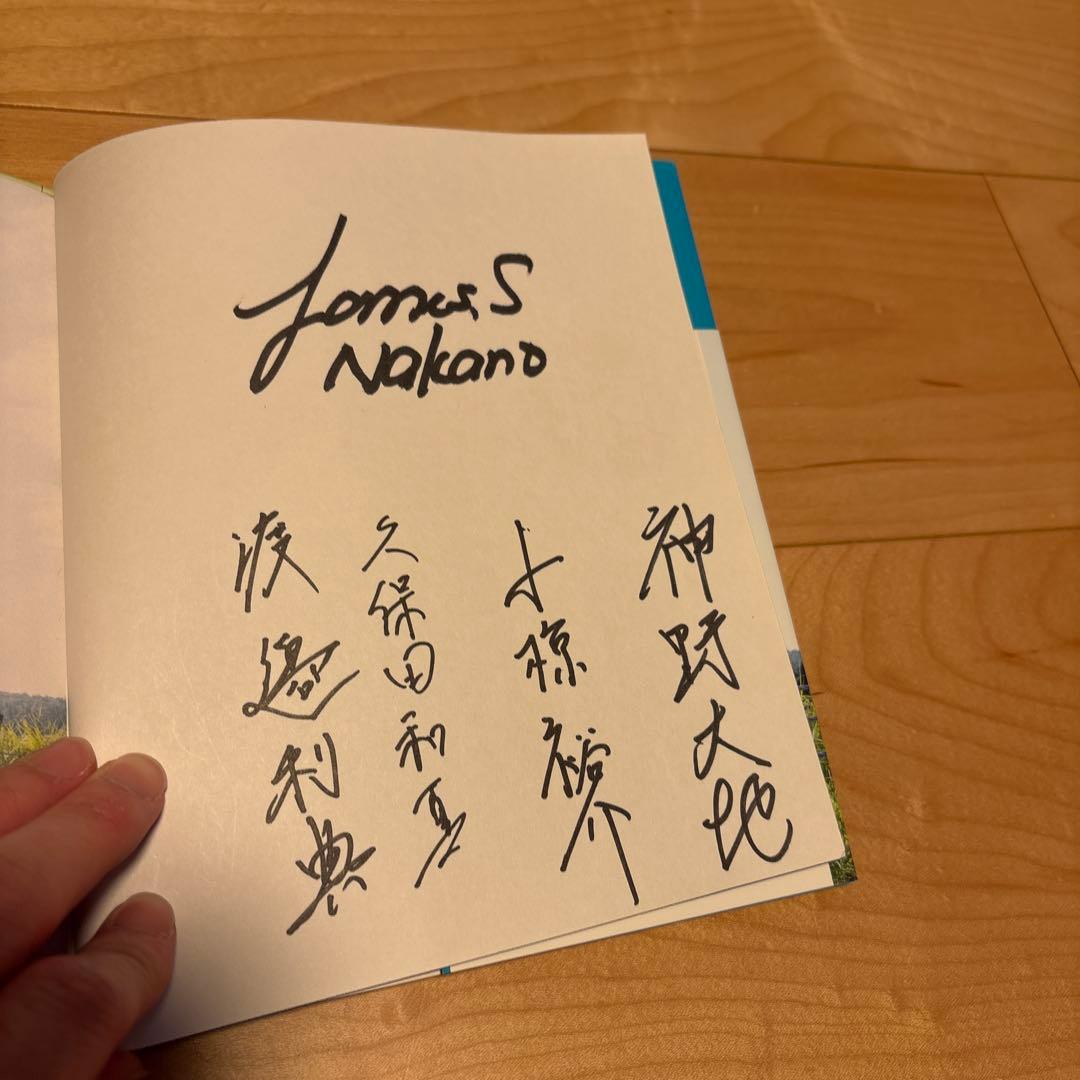 James.S
Nakano
神野大地
小椋裕介
久保田和真
渡邉利典